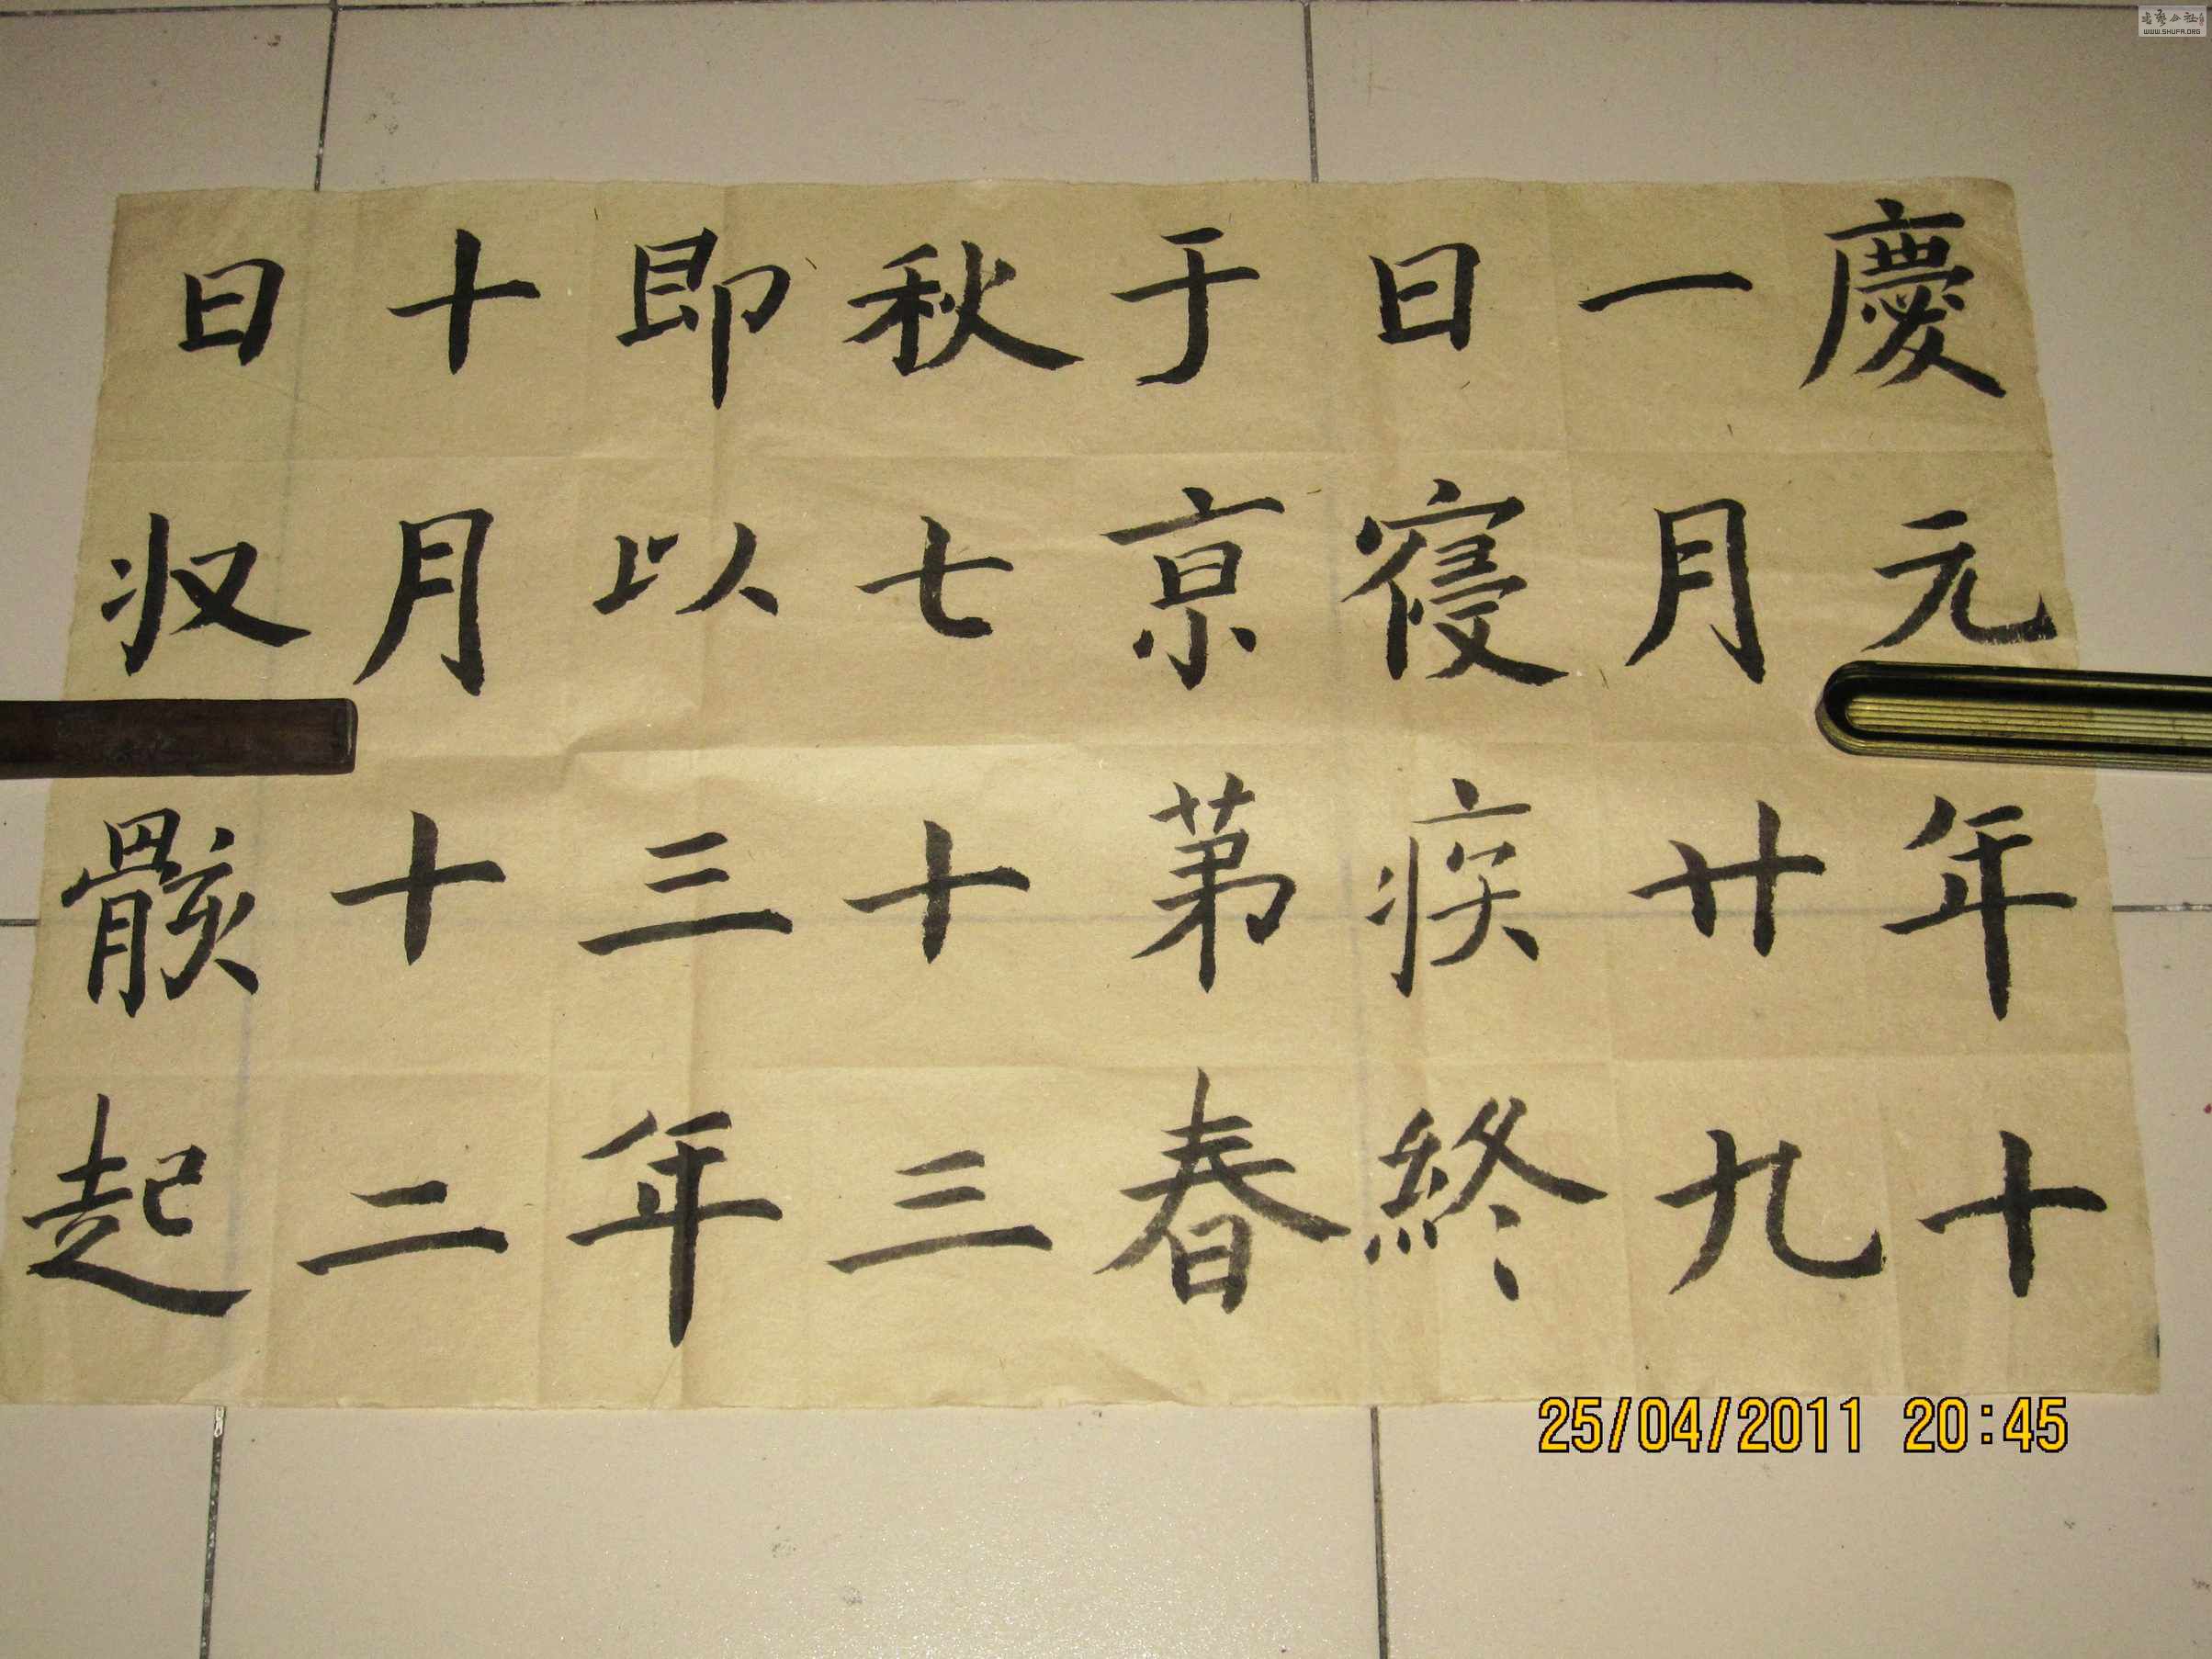 慶元年十
一月廿九
日寝疾終
于京苐春
秋七十三
即以三年
十月十二
日収骸起
25/04/2011 20:45
WWW.SHUFA.ORG